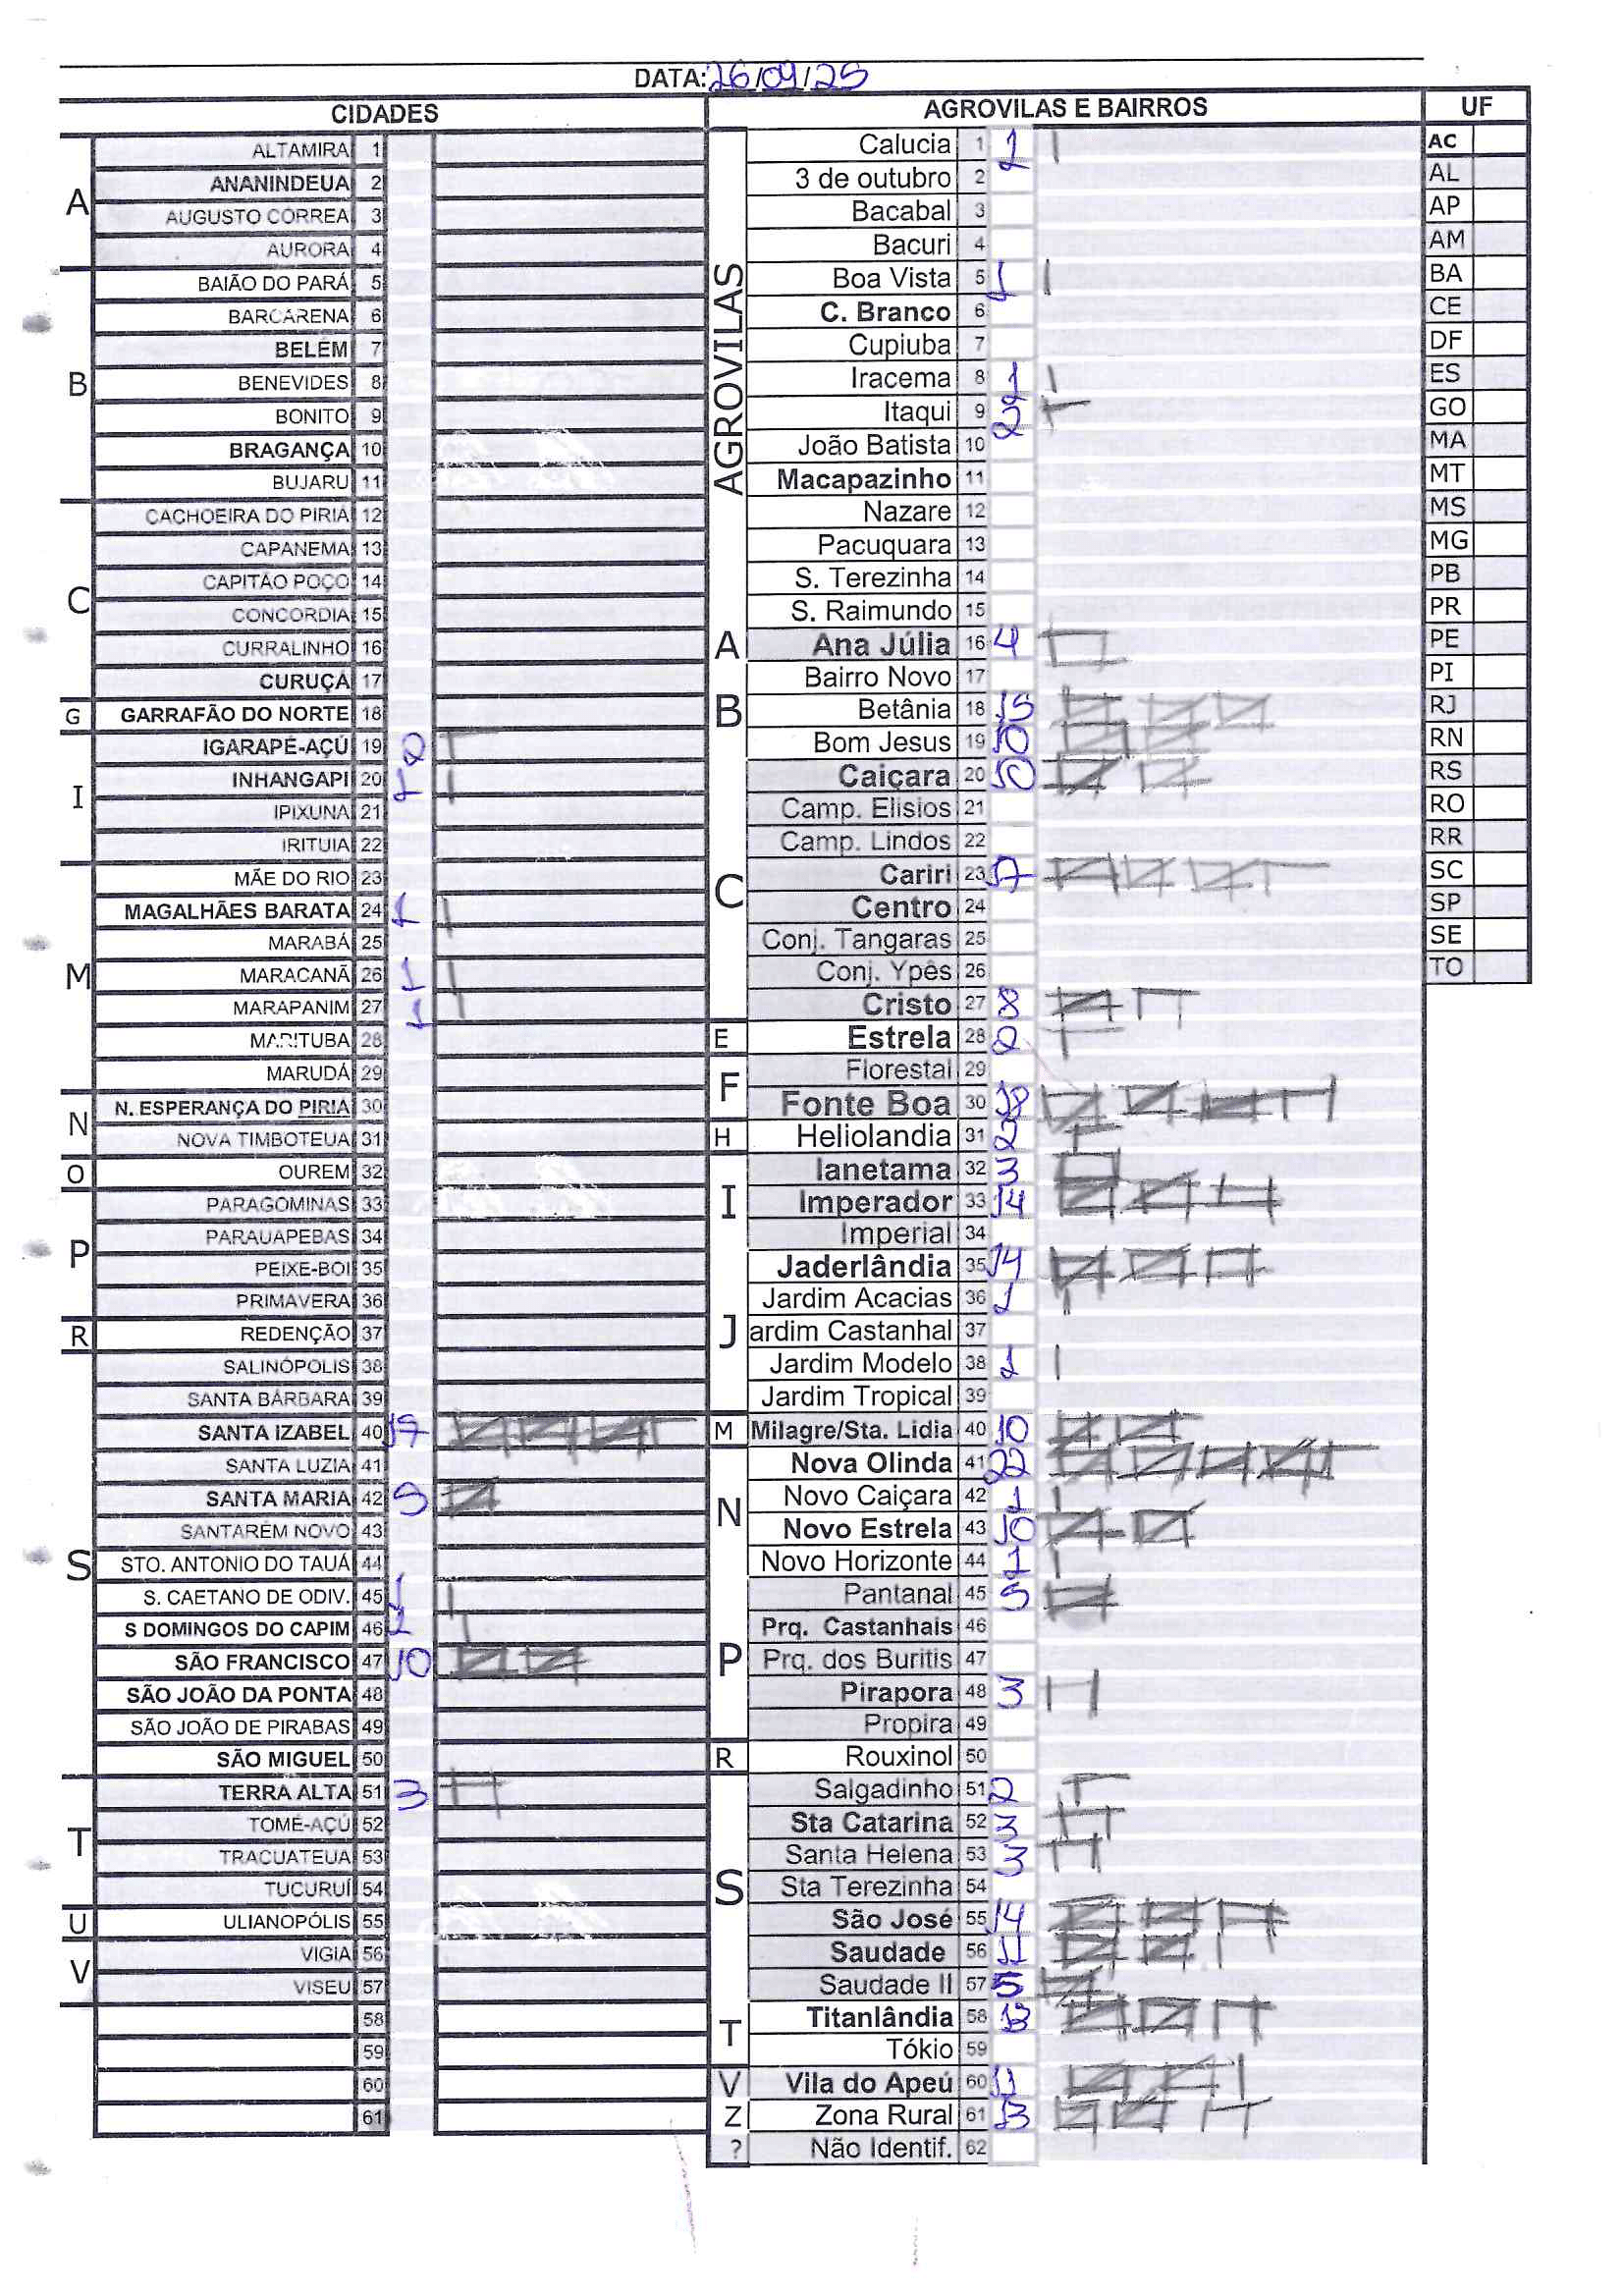 DATA: 26/09/25
CIDADES
A
ALTAMIRA 1
ANANINDEUA 2
AUGUSTO CORREA 3
AURORA 4
B
BAIÃO DO PARÁ 5
BARCARENA 6
BELÉM 7
BENEVIDES 8
BONITO 9
BRAGANÇA 10
BUJARU 11
C
CACHOEIRA DO PIRIA 12
CAPANEMA 13
CAPITÃO POÇO 14
CONCORDIA 15
CURRALINHO 16
CURUÇÁ 17
G
GARRAFÃO DO NORTE 18
I
IGARAPÉ-AÇÚ 19 2
INHANGAPI 20 1
IPIXUNA 21
IRITUIA 22
M
MÃE DO RIO 23
MAGALHÃES BARATA 24 1
MARABÁ 25
MARACANÃ 26 1
MARAPANIM 27 1
MARITUBA 28
MARUDÁ 29
N
N. ESPERANÇA DO PIRIA 30
NOVA TIMBOTEUA 31
O
OUREM 32
P
PARAGOMINAS 33
PARAUAPEBAS 34
PEIXE-BOI 35
PRIMAVERA 36
R
REDENÇÃO 37
S
SALINÓPOLIS 38
SANTA BÁRBARA 39
SANTA IZABEL 40 17
SANTA LUZIA 41
SANTA MARIA 42 5
SANTARÉM NOVO 43
STO. ANTONIO DO TAUÁ 44
S. CAETANO DE ODIV. 45 1
S DOMINGOS DO CAPIM 46 1
SÃO FRANCISCO 47 10
SÃO JOÃO DA PONTA 48
SÃO JOÃO DE PIRABAS 49
SÃO MIGUEL 50
T
TERRA ALTA 51 3
TOMÉ-AÇÚ 52
TRACUATEUA 53
TUCURUÍ 54
U
ULIANOPÓLIS 55
V
VIGIA 56
VISEU 57
58
59
60
61
AGROVILAS E BAIRROS
AGROVILAS
Calucia 1 1
3 de outubro 2
Bacabal 3
Bacuri 4
Boa Vista 5 1
C. Branco 6
Cupiuba 7
Iracema 8 1
Itaqui 9 2
João Batista 10
Macapazinho 11
Nazare 12
Pacuquara 13
S. Terezinha 14
S. Raimundo 15
A
Ana Júlia 16 4
Bairro Novo 17
B
Betânia 18 15
Bom Jesus 19 10
C
Caiçara 20 10
Camp. Elisios 21
Camp. Lindos 22
Cariri 23 17
Centro 24
Conj. Tangaras 25
Conj. Ypês 26
Cristo 27 8
E
Estrela 28 2
F
Florestal 29
Fonte Boa 30 18
H
Heliolandia 31 2
I
Ianetama 32 3
Imperador 33 14
Imperial 34
J
Jaderlândia 35 14
Jardim Acacias 36 1
ardim Castanhal 37
Jardim Modelo 38 1
Jardim Tropical 39
M
Milagre/Sta. Lidia 40 10
N
Nova Olinda 41 22
Novo Caiçara 42 1
Novo Estrela 43 10
Novo Horizonte 44 1
P
Pantanal 45 5
Prq. Castanhais 46
Prq. dos Buritis 47
Pirapora 48 3
Propira 49
R
Rouxinol 50
S
Salgadinho 51 2
Sta Catarina 52 3
Santa Helena 53 3
Sta Terezinha 54
São José 55 14
Saudade 56 11
Saudade II 57 5
T
Titanlândia 58 13
Tókio 59
V
Vila do Apeú 60 11
Z
Zona Rural 61 13
?
Não Identif. 62
UF
AC
AL
AP
AM
BA
CE
DF
ES
GO
MA
MT
MS
MG
PB
PR
PE
PI
RJ
RN
RS
RO
RR
SC
SP
SE
TO